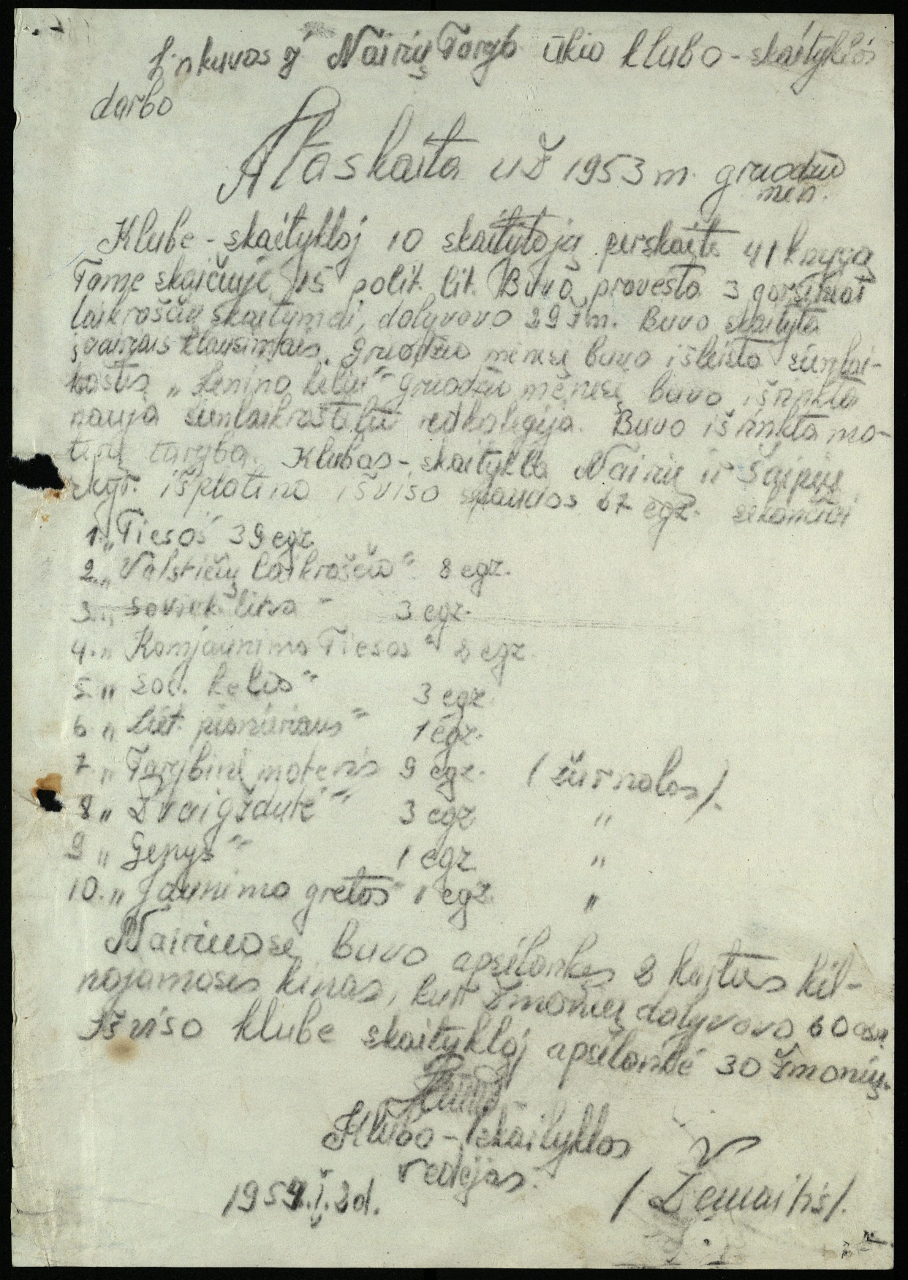 Linkuvos ž Nairių Taryb ūkio klubo-skaityklos
darbo
Ataskaita už 1953 m. gruodžio
mėn.
Klube-skaitykloj 10 skaitytojų perskaitė 41 knygą
Tame skaičiuje 15 polit. lit. Buvo pravesta 3 garsiniai
laikraščių skaitymai, dalyvavo 29 žm. Buvo skaityta
įvairiais klausimais. Gruodžio mėnesį buvo išleista sienlai-
kraštis „Lenino keliu" gruodžio mėnesį buvo išrinkta
nauja sienlaikraštėlio redkolegija. Buvo išrinkta mo-
terų taryba. Klubas-skaitykla Nairių ir
skyr. išplatino išviso spaudos 67 egz. sekančiai
1. „Tiesos" 39 egz
2. „Valstiečių laikraščio" 8 egz.
3. „ 3 egz.
4. „Komjaunimo Tiesos" 2 egz
5. „Soc. kelias" 3 egz
6. „Liet. pionieriaus" 1 egz.
7. „Tarybinė moteris 9 egz. (žurnalas).
8 „Žvaigždutė" 3 egz „
9 „Genys" 1 egz „
10. „Jaunimo gretos" 1 egz. „
Nairiuose buvo apsilankęs 2 kartus kil-
nojamasis kinas, kur žmonių dalyvavo 60 asm.
Išviso klube skaitykloj apsilankė 30 žmonių.
Klubo-skaityklos
vedėjas.
1954.I.2d. / Žemaitis/.